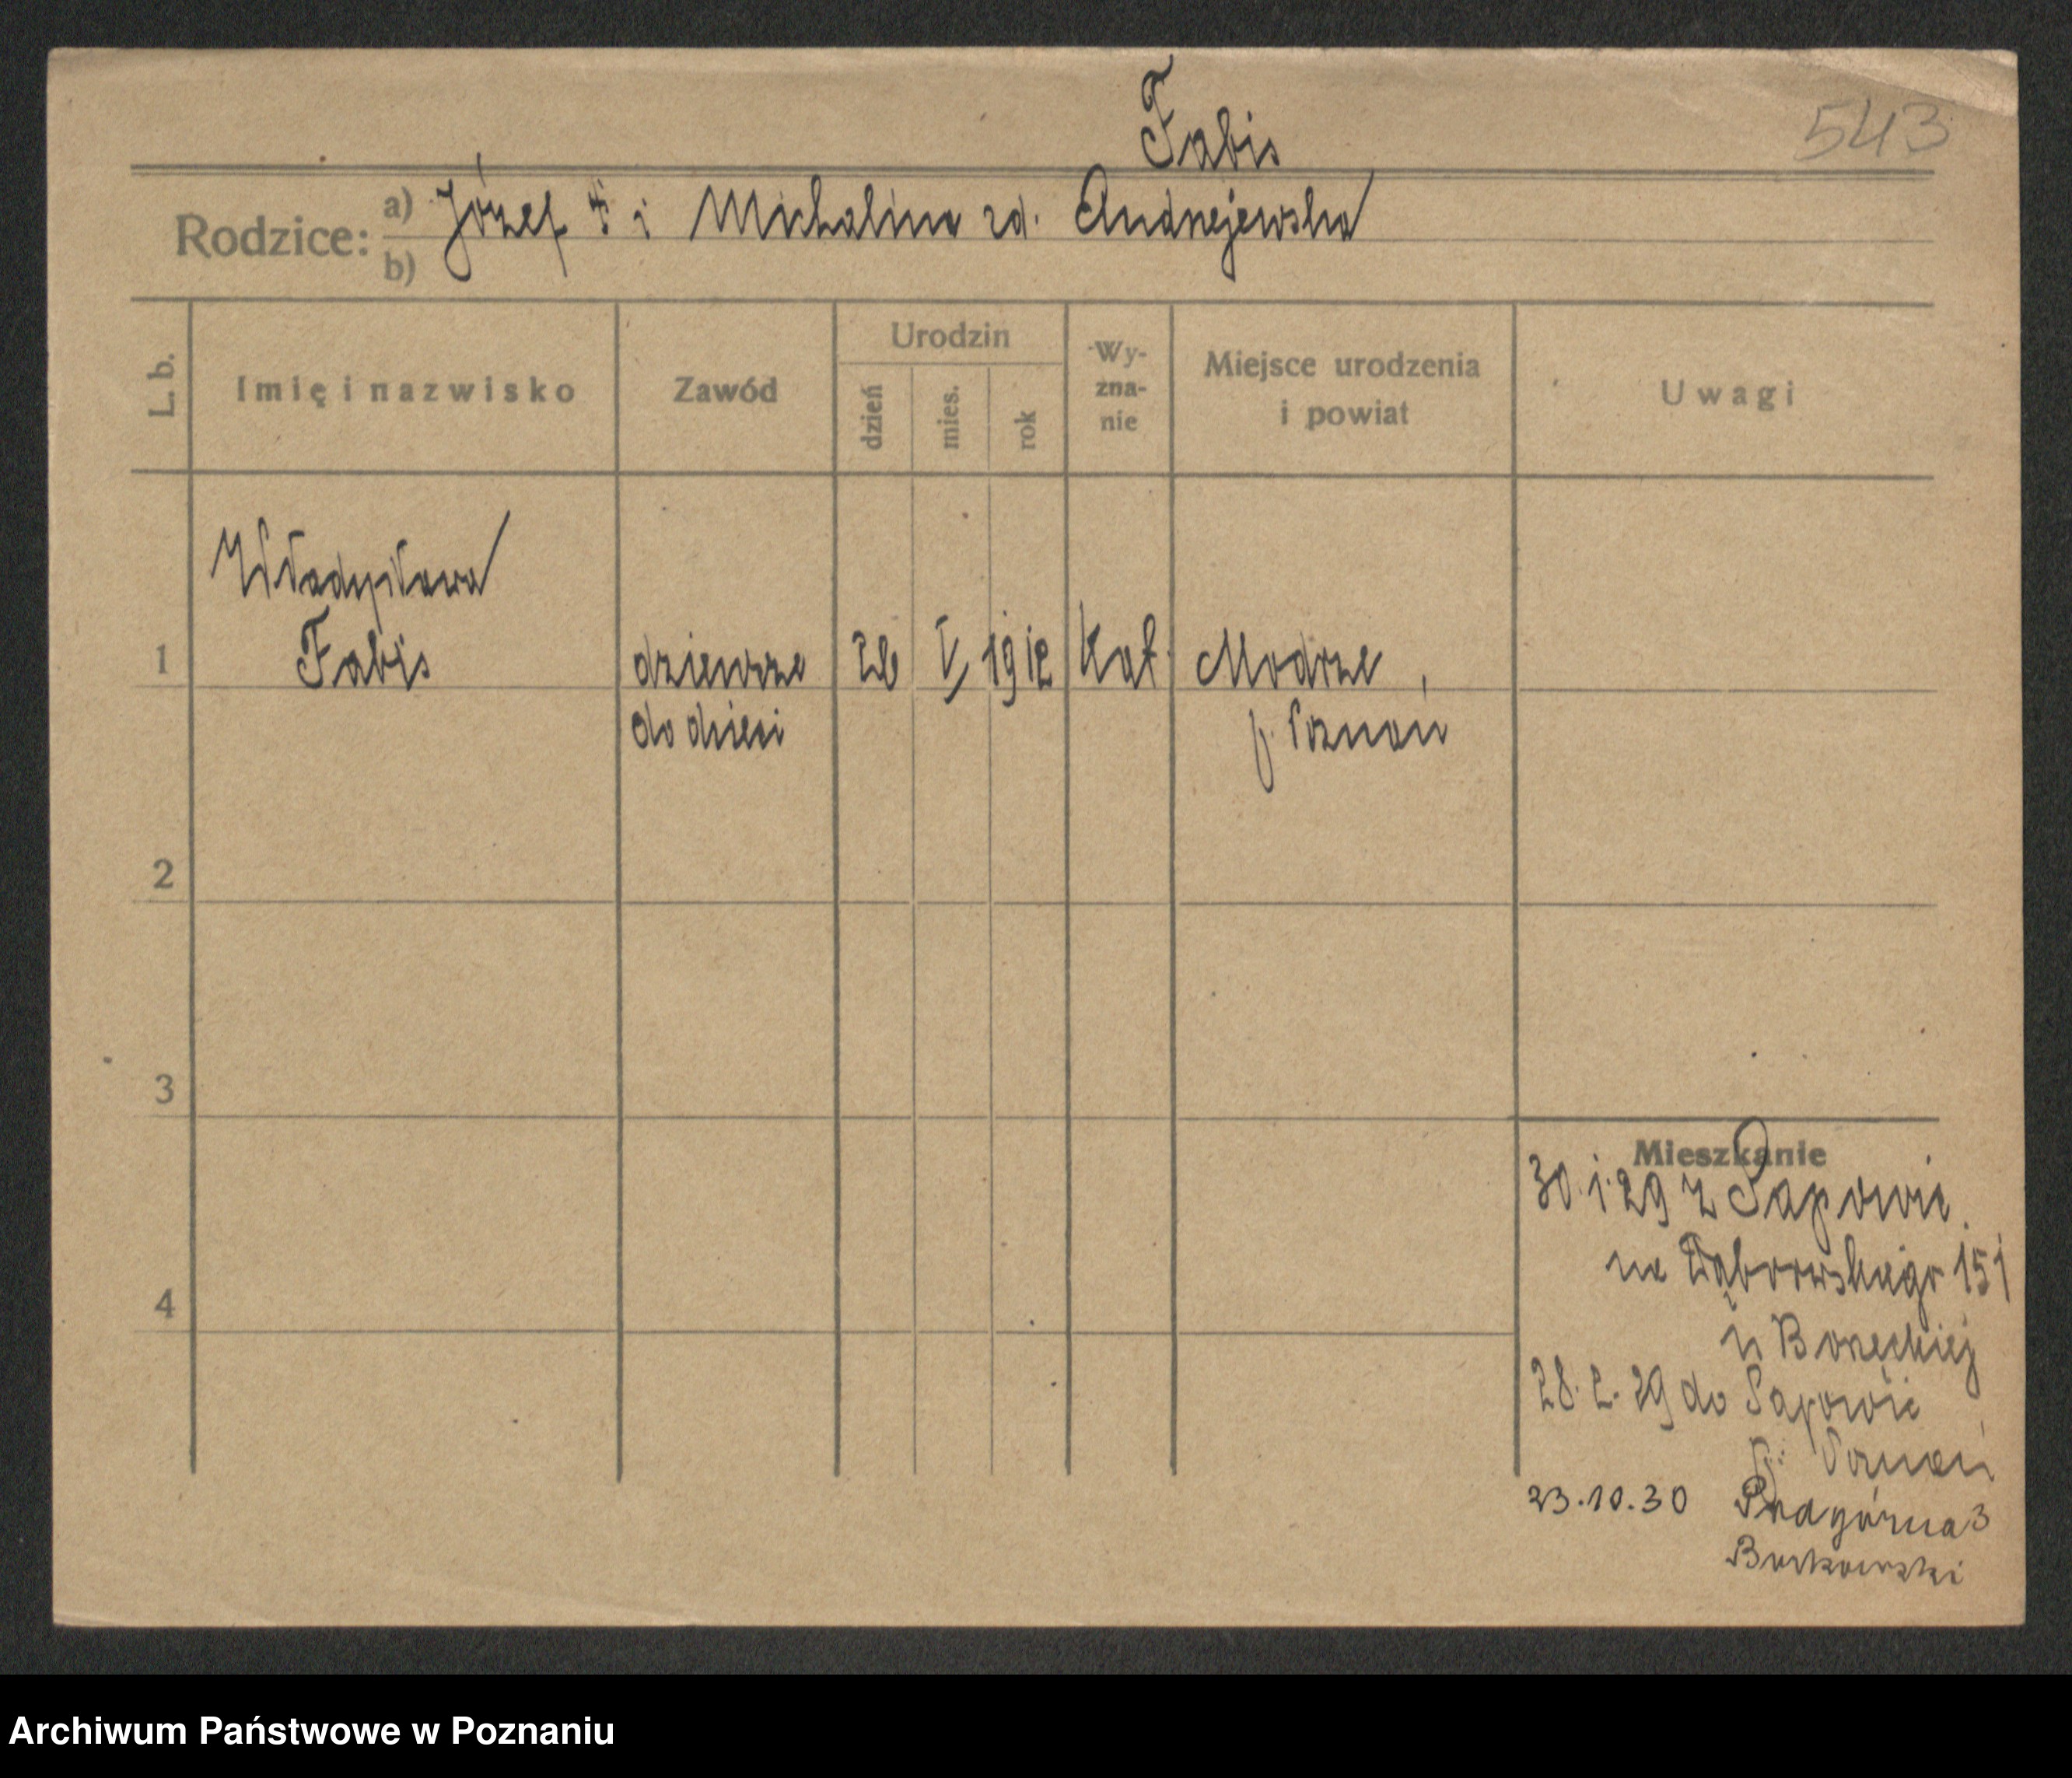 Fabis
543
Rodzice: a) Józef † i Michalina zd. Andrzejewska
b)
L. b.
Imię i nazwisko
Zawód
Urodzin
dzień
mies.
rok
Wy-
zna-
nie
Miejsce urodzenia
i powiat
Uwagi
Władysława
1 Fabis dziewcze 26 V 1912 Kat. Modrze,
do dzieci p. Poznań
2
3
4
Mieszkanie
30.1.29 z Sapowic
na Dąbrowskiego 151
u Boreckiej
28.2.29 do Sapowic
p. Poznań
23.10.30 Podgórna 3
Borkowski
Archiwum Państwowe w Poznaniu